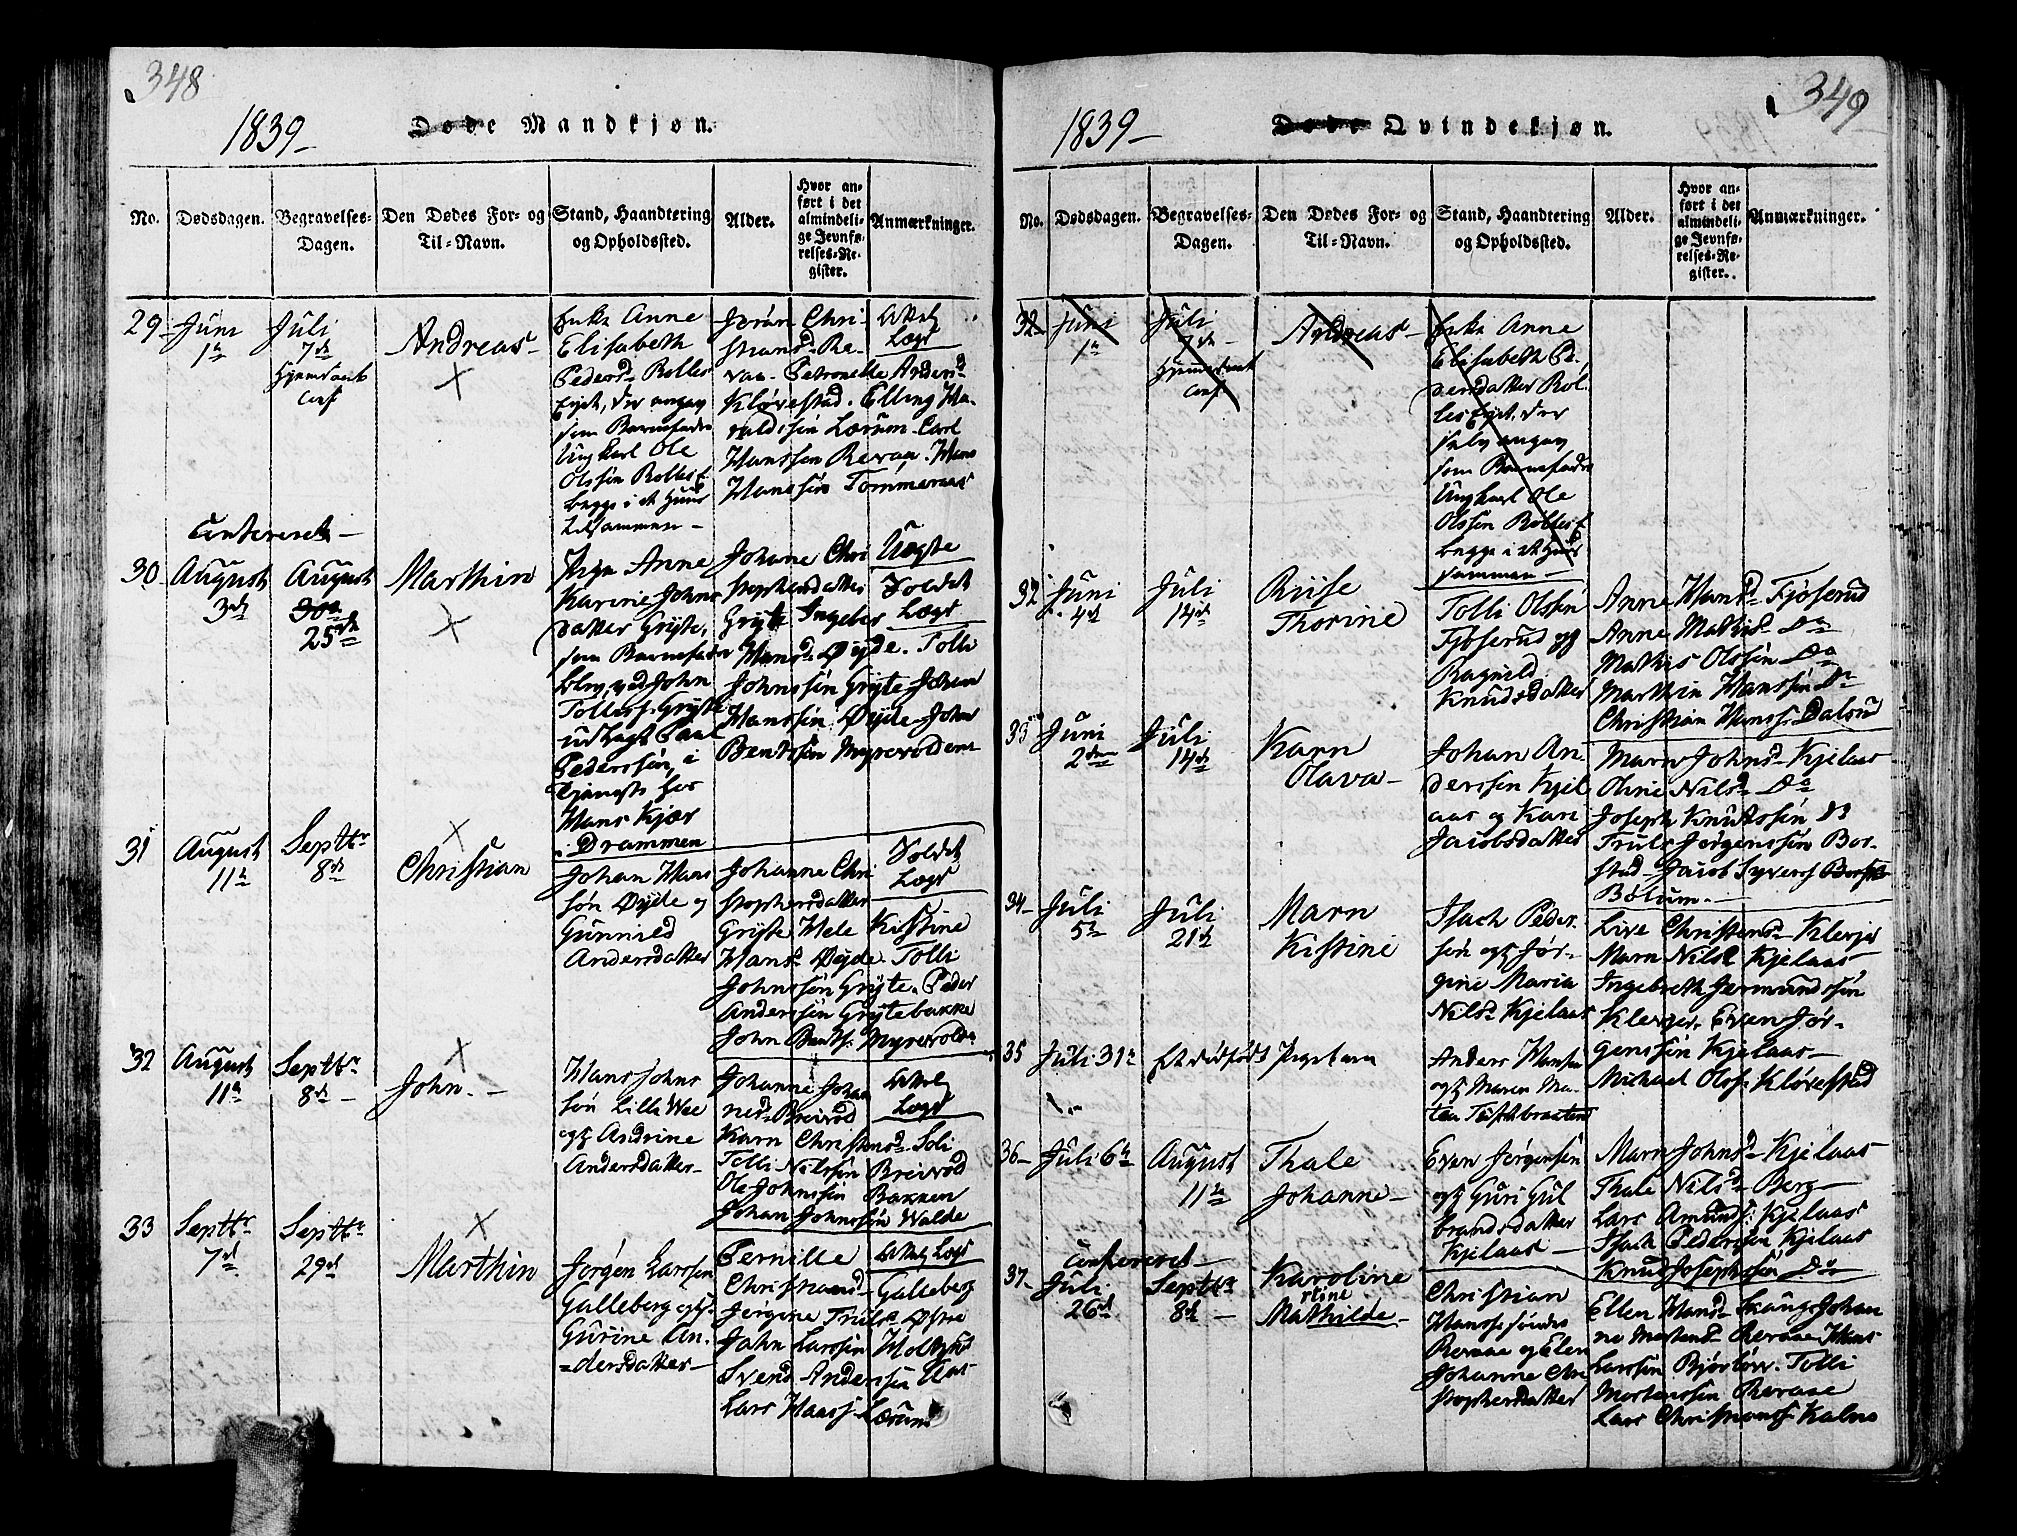 348
1839
Døde Mandkjøn.
No.
Dødsdagen.
Begravelses-
Dagen.
Den Dødes For- og
Til-Navn.
Stand, Haandtering
og Opholdssted.
Alder.
Hvor an-
ført i det
almindeli-
ge Jevnfø-
relses-Re-
gister.
Anmærkninger.
29 Juni
1
Juli
7de
Andreas
Anne
Elisabeth
Peders
som Barnefader
Ungkarl Ole
Olssøn
begge i et Huus
tilsammen
Jøran Chri-
stians Re-
vaa Petronelle Anders
Kløvestad. Elling Ha-
raldssøn Lærum. Carl
Hanssøn Revaa. Hans
Hanssøn Tommeraas
30 August
3de
August
25de
Marthin
Pige Anne
Karine Johns
datter Gryte,
som Barnefader
blev ved John
Tollefs. Gryte
udlagt Paul
Pederssøn, i
Tjeneste hos
Hans Kjær
i Drammen
Uægte
Johane Chri
stophersdatter
Gryte Ingeber
Hansd. Øyde. Tolli
Johnssøn Gryte Johan
Hanssøn Øyde. John
Bentssøn Myrevolden
31 August
11
Septbr
8de
Christian
Johan Hans
søn Øyde og
Gunnild
Andersdatter
Johanne Chri
stophersdatter
Gryte Hele Kistine
Hansd. Øyde. Tolli
Johnssøn Gryte. Peder
Anderssøn Grytebakke
John Bents. Myrevolde
32 August
11
Septbr
8de
John
Hans Johns
søn Lille Wee
og Andrine
Andersdatter
Johanne Johan
nesd. Breivod
Karn Christensd. Soli
Tolli Nilssøn Breivod
Ole Johnssøn Bakken
Johan Johnssøn Walde
33 Septbr
7de
Septbr
29de
Marthin
Jørgen Larssøn
Galleberg og
Gurine An-
dersdatter
Pernille
Christiansd. Galleberg
Jørgine Truls. Østre
John Larssøn Holtung
Svend Anderssøn Aas
Lars Haags. Lærum
349
1839
Døde Qvindekjøn.
No.
Dødsdagen.
Begravelses-
Dagen.
Den Dødes For- og
Til-Navn.
Stand, Haandtering
og Opholdssted.
Alder.
Hvor an-
ført i det
almindeli-
ge Jevnfø-
relses-Re-
gister.
Anmærkninger.
32 Juni
1
Juli
7de
Andreas
Anne
Elisabeth Pe-
dersdatter Rol-
som Barnefader
Ungkarl Ole
Olssøn
begge i et Huus
sammen
32 Juni
4de
Juli
14de
Riise
Thorine
Tolli Olssøn
Fjøserud og
Ragnild
Knudsdatter
Anne Hansd. Fjøserud
Anne Mathisd. Do
Mathis Olssøn Do
Marthin Hanssøn Do
Christian Hanss. Dalsud
33 Juni
2den
Juli
14de
Karn
Olava
Johan An-
derssøn Kjel
aas og Kari
Jacobsdatter
Marn Johnsd. Kjelaas
Oline Nilsd. Do
Joseph Knutssøn Do
Truls Jørgenssøn Bor-
stad. Jacob Syverss
Bølum.
34 Juli
5
Juli
21de
Marn
Kistine
Isach Peder-
søn og Jør-
gine Maria
Nilsd. Kjelaas
Live Christensd. Klerjer
Marn Nilsd. Kjelaas
Ingebreth Germundssøn
Klerjer. Even Jør-
genssøn Kjelaas
Michael Olss. Kløvestad
35 Juli 31
Et dødfødt Pigebarn
Anders Hansen
og Maren Ma-
36 Juli 6
August
11
Thale
Johanne
Even Jørgensøn
og Guri Gul
brandsdatter
Kjelaas
Marn Johnsd. Kjelaas
Thale Nilsd. Berg
Lars Amunds. Kjelaas
Isach Pederssøn Kjelaas
Knud Josephssøn Do
37 Juli
26de
Septbr
8de
Karoline
Mathilde
Christian
Revaae og Elen
Johanne Chri
stophersdatter
Ellen Hansd. Skaug. Johan
ne Mortensd. Revaae. Hans
Larssøn Tolli
Mortenssøn Revaae
Lars Christians. Kalnes